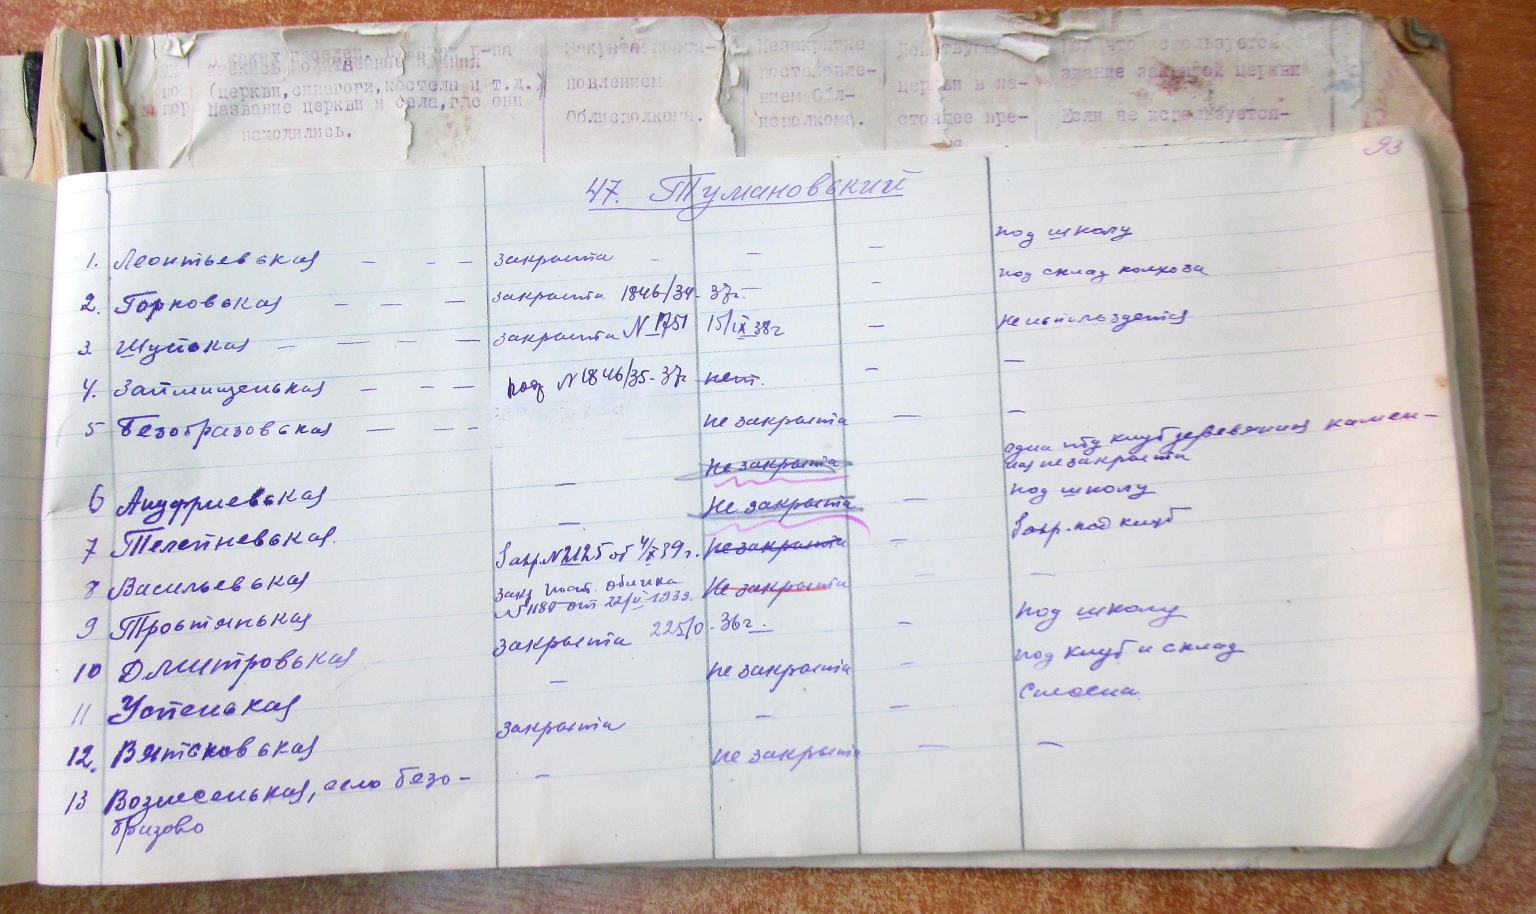 В каких населен. пунктах р-на
(церкви, синагоги, костелы и т.д.)
Название церкви и села, где они
находились.
Закрыта поста-
новлением
Облисполкома.
Незакрытые
постановле-
нием Обл-
исполкома.
Действующ
церкви в на-
стоящее вре-
мя
Под что используется
здание закрытой церкви
Если не используется-
93
47. Тумановский
1. Леонтьевская — — — закрыта — — — под школу
2. Горновская — — — закрыта 1846/34-37г. — — под склад колхоза
3. Шуйская — — — — закрыта №1751 15/IX 38г — не используется
4. Займищенская — — — под №1846/35-37г нет. — —
5 Безобразовская — — — не закрыта — —
6 Ануфриевская — не закрыта одна под клуб деревянная камен-
ная не закрыта
7 Телепневская. — не закрыта — под школу
8 Васильевская Закр. №2125 от 4/X 39г. не закрыта — Закр. под клуб
9 Тростянская закр. пост. облиспка
№1180 от 22/VI-1939. не закрыта — —
10 Дмитровская закрыта 2250-36г. — под школу
11 Успенская — не закрыта — под клуб и склад
12. Вятсковская закрыта — — Сылосна
13 Вознесенская, село Безо-
бразово — не закрыта — —